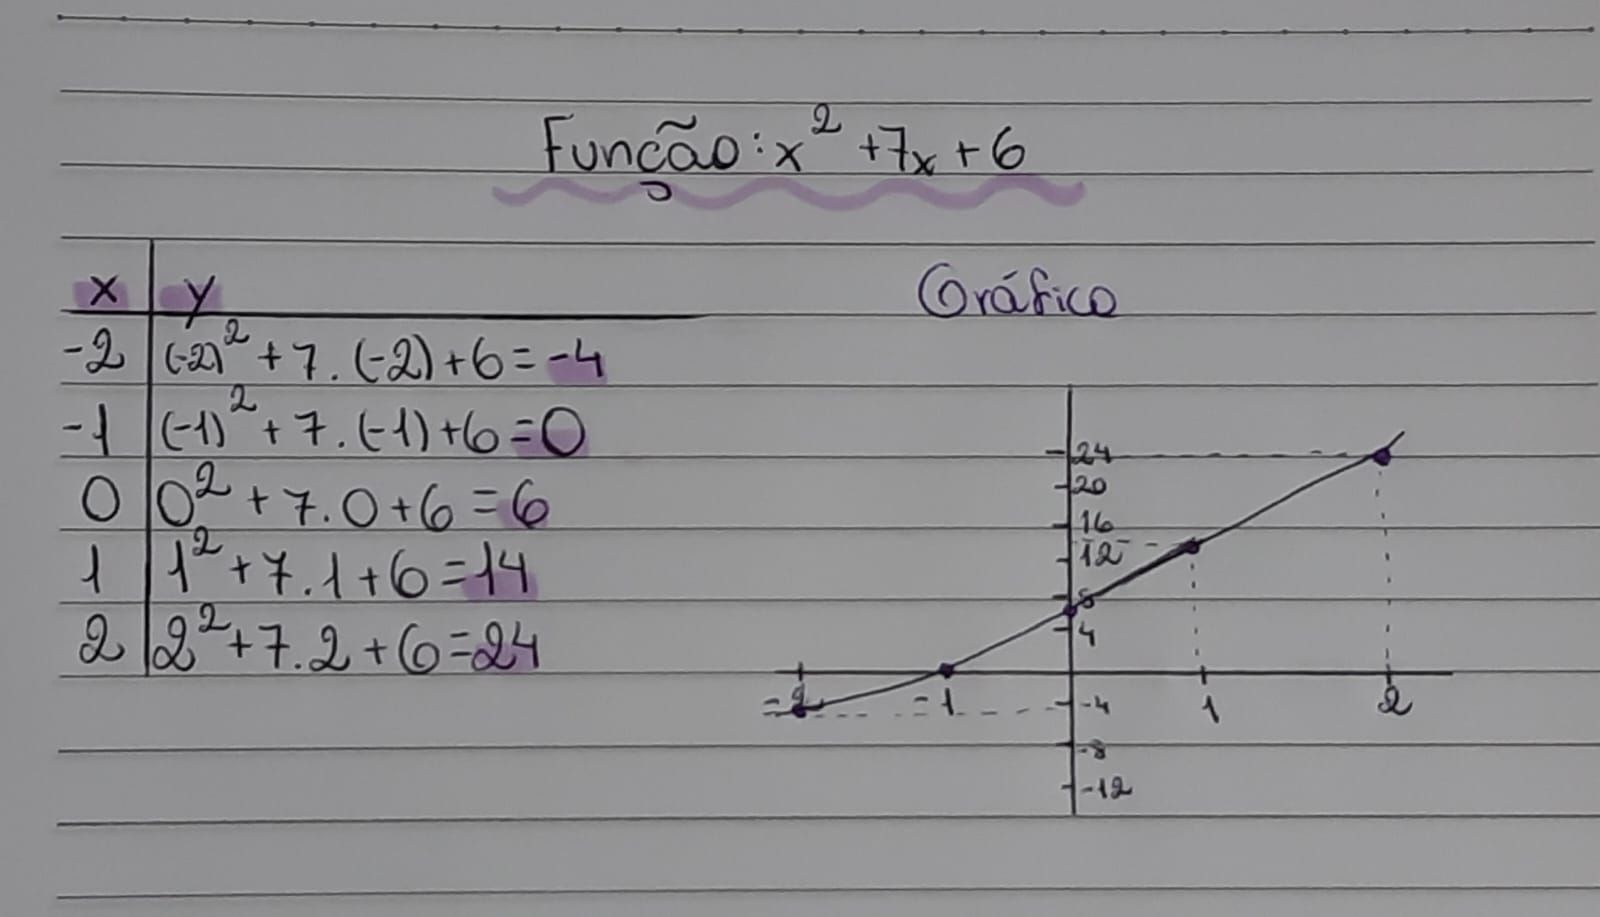 Função: x² + 7x + 6
x y
-2 (-2)² + 7 . (-2) + 6 = -4
-1 (-1)² + 7 . (-1) + 6 = 0
0 0² + 7 . 0 + 6 = 6
1 1² + 7 . 1 + 6 = 14
2 2² + 7 . 2 + 6 = 24
Gráfico
24
20
16
12
8
4
-2 -1 1 2
-4
-8
-12